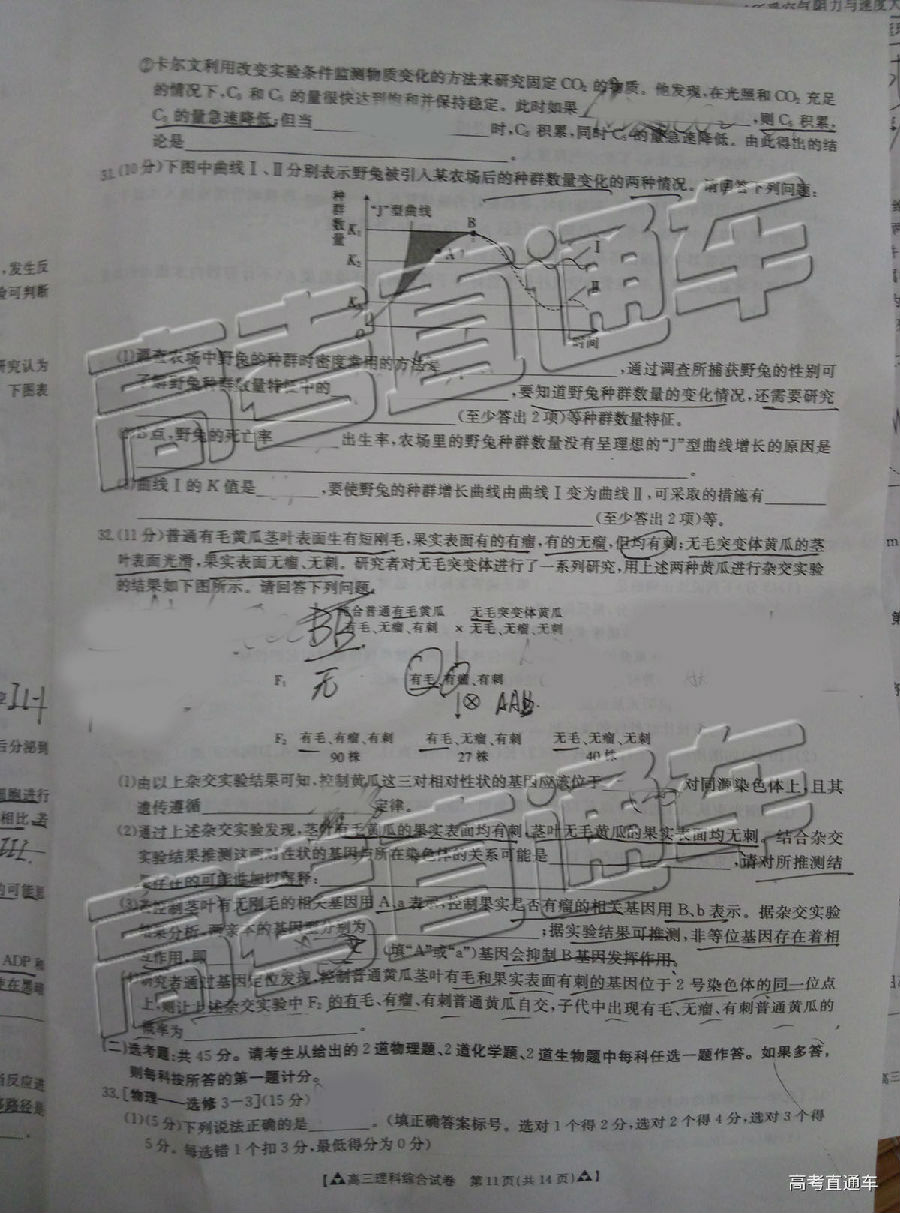 ②卡尔文利用改变实验条件监测物质变化的方法来研究固定CO₂的物质。他发现,在光照和CO₂充足
的情况下,C₃和C₅的量很快达到饱和并保持稳定。此时如果,则C₅积累,
C₃的量急速降低;但当时,C₃积累,同时C₅的量急速降低。由此得出的结
论是。
31.(10分)下图中曲线Ⅰ、Ⅱ分别表示野兔被引入某农场后的种群数量变化的两种情况。请回答下列问题:
种群数量
"J"型曲线
B
K₁
A
K₂
Ⅰ
Ⅱ
K₃
O
时间
(1)调查农场中野兔的种群时密度常用的方法是,通过调查所捕获野兔的性别可
了解野兔种群数量特征中的,要知道野兔种群数量的变化情况,还需要研究
(至少答出2项)等种群数量特征。
B点,野兔的死亡率出生率,农场里的野兔种群数量没有呈理想的"J"型曲线增长的原因是
。
曲线Ⅰ的K值是,要使野兔的种群增长曲线由曲线Ⅰ变为曲线Ⅱ,可采取的措施有
(至少答出2项)等。
32.(11分)普通有毛黄瓜茎叶表面生有短刚毛,果实表面有的有瘤,有的无瘤,但均有刺;无毛突变体黄瓜的茎
叶表面光滑,果实表面无瘤、无刺。研究者对无毛突变体进行了一系列研究,用上述两种黄瓜进行杂交实验
的结果如下图所示。请回答下列问题。
合普通有毛黄瓜 无毛突变体黄瓜
有毛、无瘤、有刺 × 无毛、无瘤、无刺
BB
F₁ 无 有毛、有瘤、有刺
⊗ AAB
F₂ 有毛、有瘤、有刺 有毛、无瘤、有刺 无毛、无瘤、无刺
90株 27株 40株
(1)由以上杂交实验结果可知,控制黄瓜这三对相对性状的基因应该位于对同源染色体上,且其
遗传遵循定律。
(2)通过上述杂交实验发现,茎叶有毛黄瓜的果实表面均有刺,茎叶无毛黄瓜的果实表面均无刺。结合杂交
实验结果推测这两对性状的基因与所在染色体的关系可能是,请对所推测结
果存在的可能性加以解释:
(3)若控制茎叶有无刚毛的相关基因用A、a表示,控制果实是否有瘤的相关基因用B、b表示。据杂交实验
结果分析,两亲本的基因型分别为;据实验结果可推测,非等位基因存在着相
互作用,即(填"A"或"a")基因会抑制B基因发挥作用。
研究者通过基因定位发现,控制普通黄瓜茎叶有毛和果实表面有刺的基因位于2号染色体的同一位点
上,则让上述杂交实验中F₂的有毛、有瘤、有刺普通黄瓜自交,子代中出现有毛、无瘤、有刺普通黄瓜的
概率为。
(二)选考题:共45分。请考生从给出的2道物理题、2道化学题、2道生物题中每科任选一题作答。如果多答,
则每科按所答的第一题计分。
33.[物理——选修3—3](15分)
(1)(5分)下列说法正确的是。(填正确答案标号。选对1个得2分,选对2个得4分,选对3个得
5分。每选错1个扣3分,最低得分为0分)
【高三理科综合试卷 第11页(共14页)】
高考直通车
高考直通车
高考直通车
,发生反
验可判断
研究认为
下图表
后分泌到
ADP和